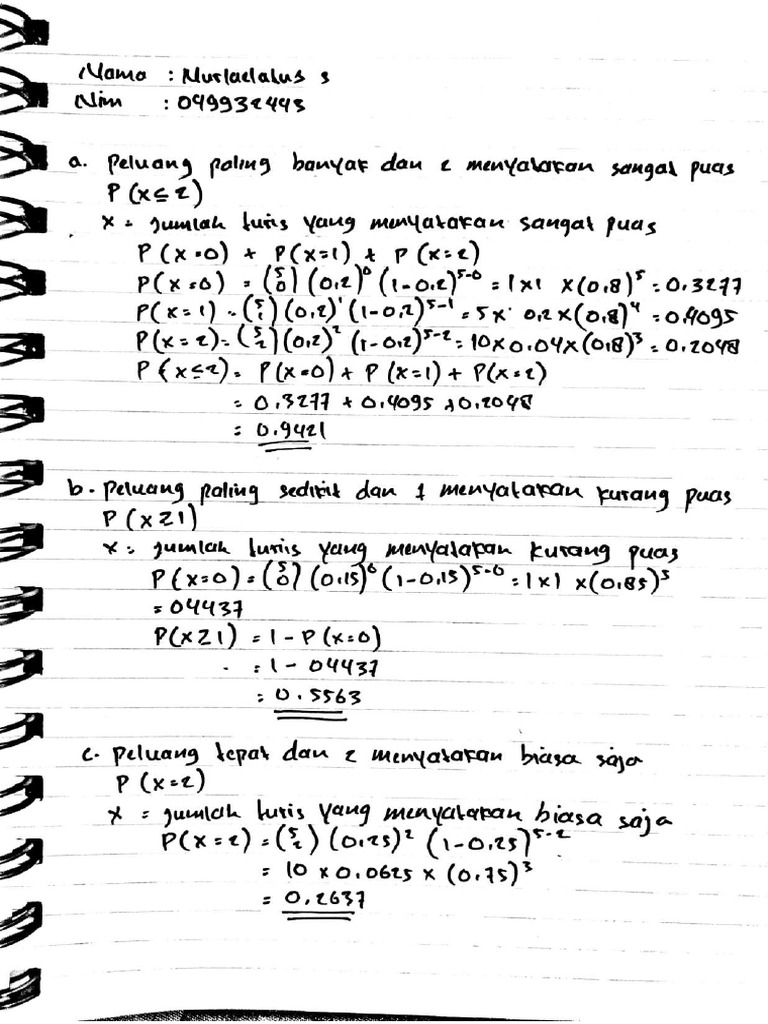 Nama : Nurlaelatus s
Nim : 049932443
a. Peluang paling banyak dan 2 menyatakan sangat puas
P (x ≤ 2)
x = jumlah turis yang menyatakan sangat puas
P (x=0) + P(x=1) + P (x=2)
P(x=0) = (5 0) (0,2)⁰ (1-0,2)⁵⁻⁰ = 1×1 ×(0,8)⁵ = 0.3277
P(x=1) = (5 1) (0,2)¹ (1-0,2)⁵⁻¹ = 5× 0,2×(0,8)⁴ = 0.4095
P(x=2) = (5 2) (0,2)² (1-0,2)⁵⁻² = 10×0.04×(0,8)³ = 0.2048
P (x≤2) = P(x=0) + P (x=1) + P(x=2)
= 0.3277 + 0.4095 + 0.2048
= 0.9421
b. Peluang paling sedikit dan 1 menyatakan kurang puas
P (x ≥ 1)
x = jumlah turis yang menyatakan kurang puas
P(x=0) = (5 0) (0,15)⁰ (1-0,15)⁵⁻⁰ = 1×1 ×(0,85)⁵
= 04437
P(x≥1) = 1 - P (x=0)
= 1 - 04437
= 0.5563
c. Peluang tepat dan 2 menyatakan biasa saja
P (x=2)
x = jumlah turis yang menyatakan biasa saja
P(x=2) = (5 2) (0,25)² (1-0,25)⁵⁻²
= 10 × 0.0625 × (0,75)³
= 0.2637